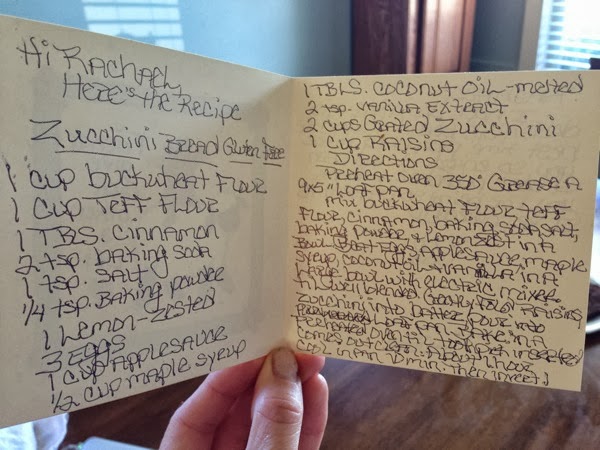 Hi Rachael,
Here's the Recipe
Zucchini Bread Gluten free
1 cup buckwheat flour
1 cup Teff Flour
1 TBS. cinnamon
2 tsp. baking soda
1 tsp. salt
1/4 tsp. Baking powder
1 Lemon-zested
3 Eggs
1 cup Applesauce
1/2 cup maple syrup
1 TBLS. coconut oil-melted
2 tsp. vanilla Extract
2 cups Grated Zucchini
1 cup Raisins
Directions
Preheat oven 350° Grease a
9x5" Loaf pan.
mix buckwheat flour, teff
flour, cinnamon, baking soda, salt,
baking powder, & Lemon zest in a
Bowl. Beat Eggs, applesauce, maple
syrup, coconut oil & vanilla, in a
large bowl with electric mixer
til well blended. Gently fold raisins,
zucchini into batter, pour into
Loaf pan. Bake in a
preheated oven til toothpick inserted
comes out clean. About 1 hour
cool in pan 10 min. then invert.